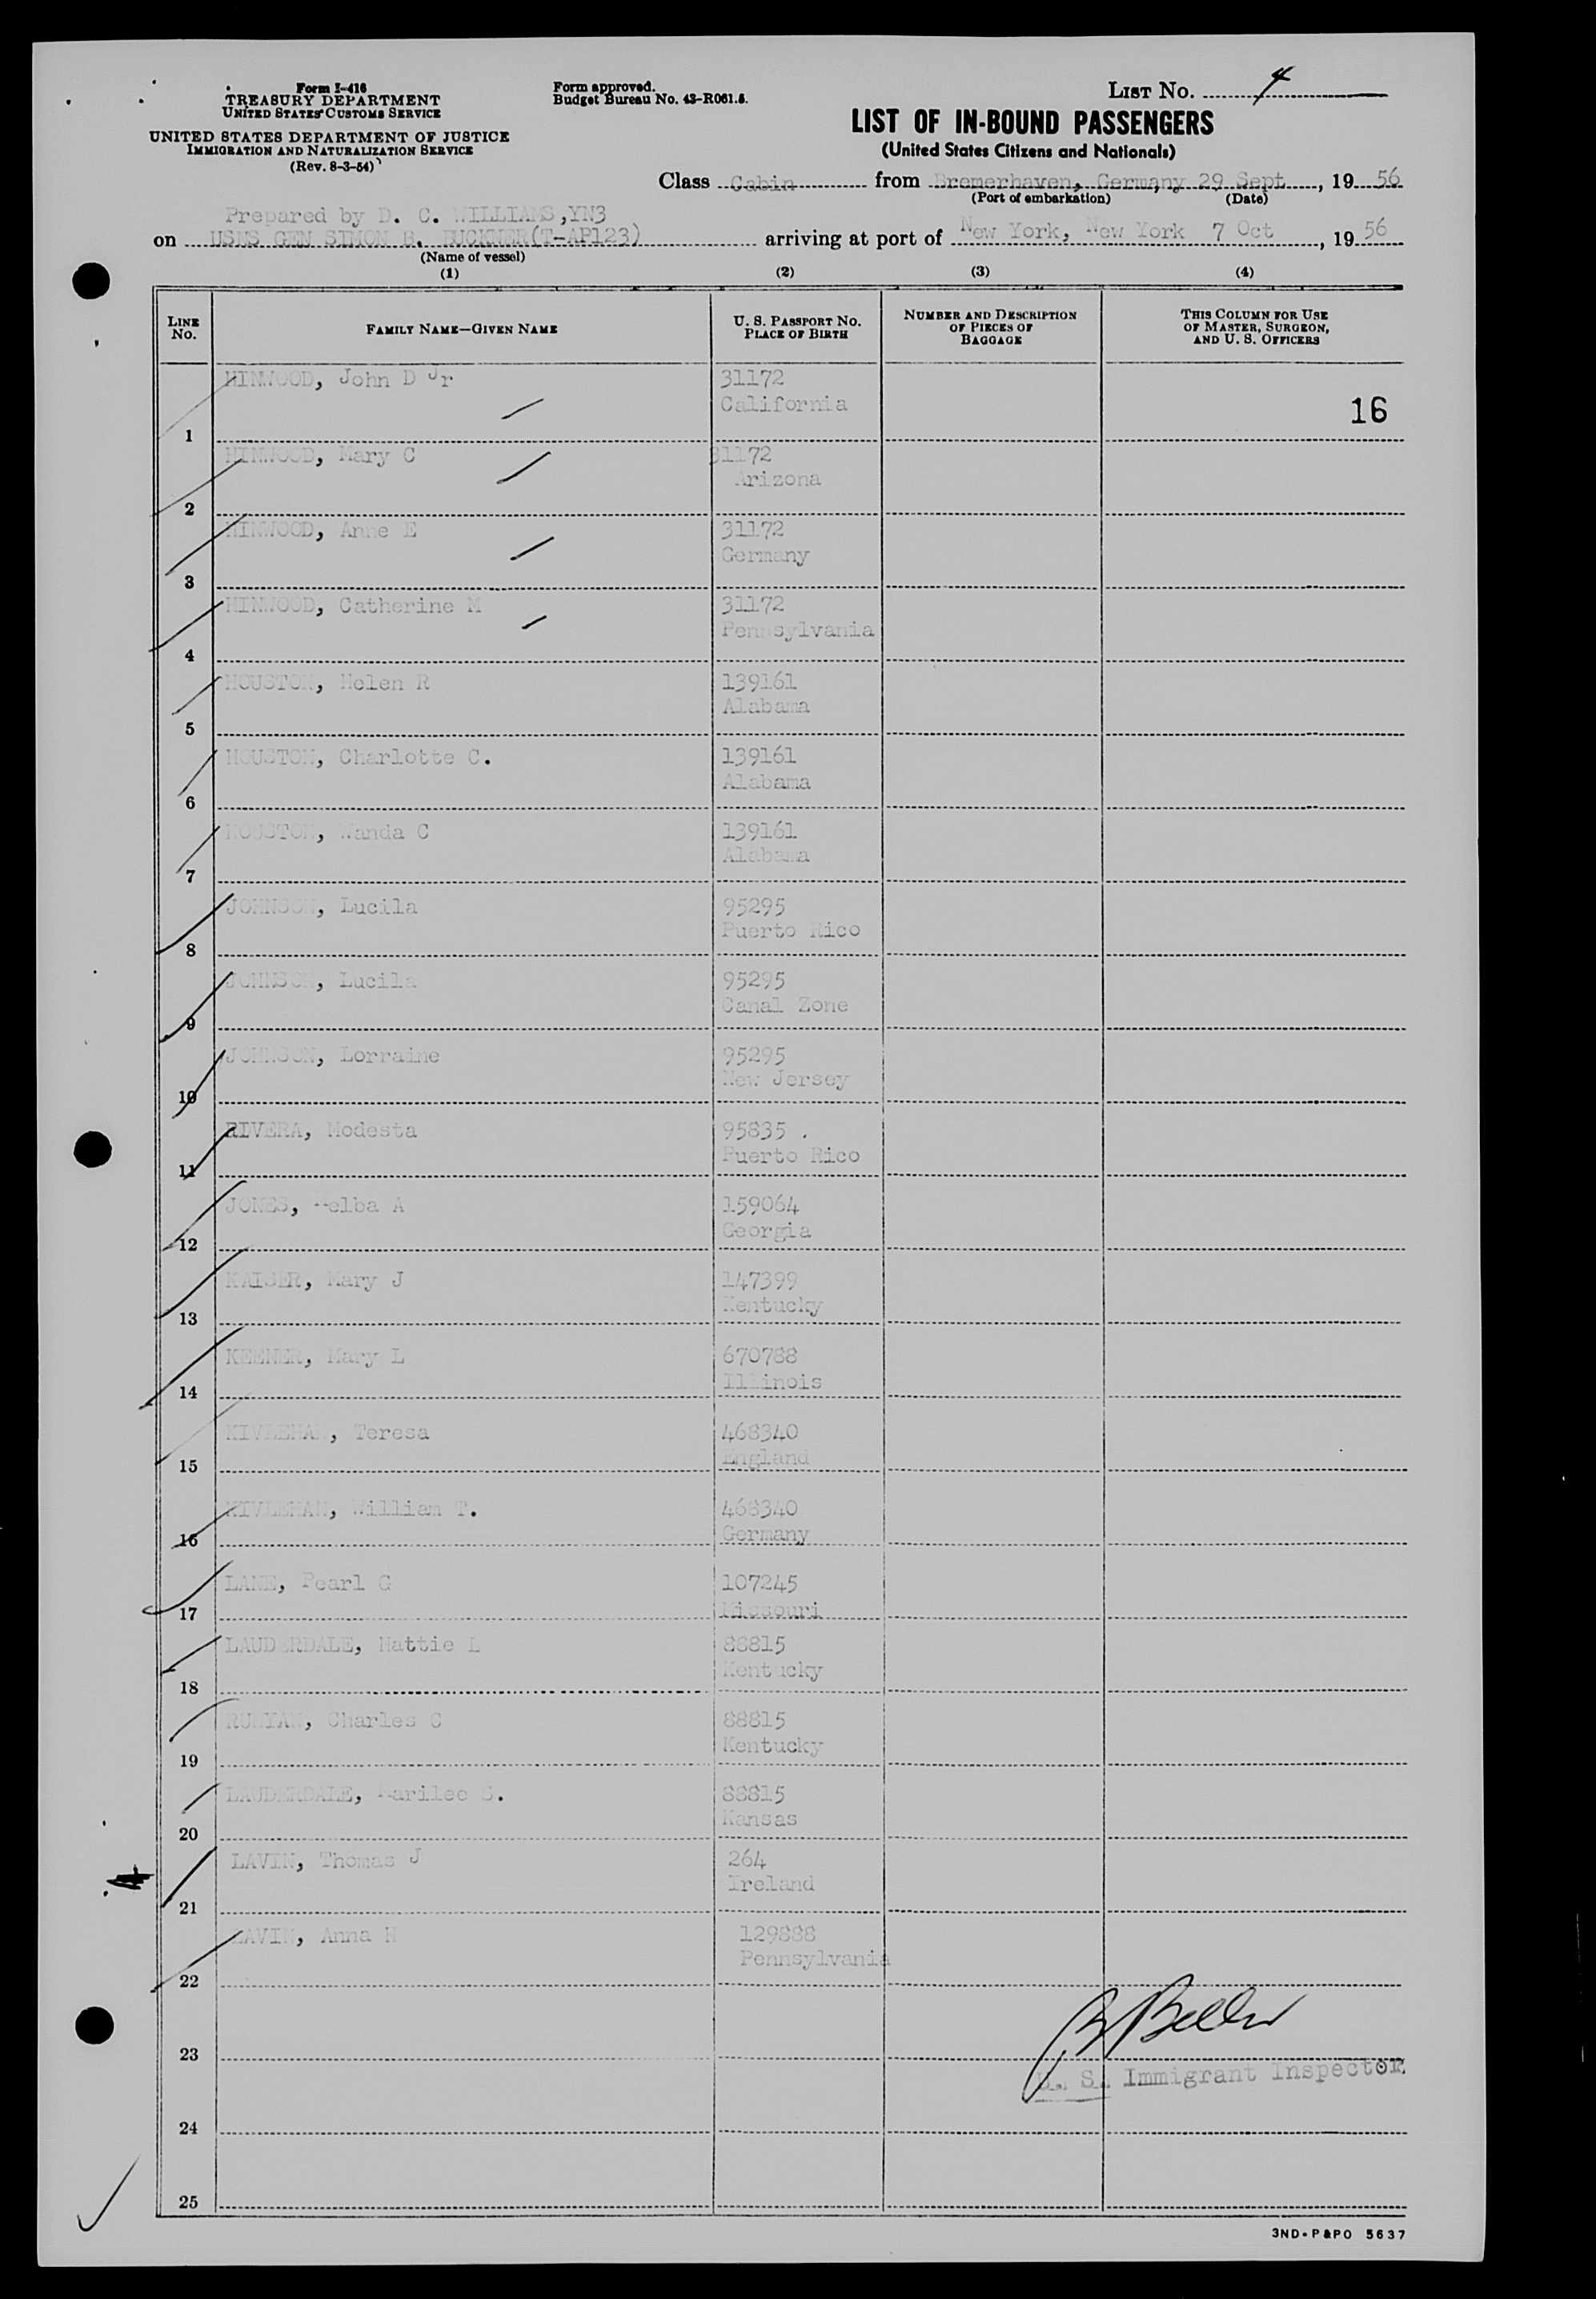 Form I-416
TREASURY DEPARTMENT
UNITED STATES CUSTOMS SERVICE
UNITED STATES DEPARTMENT OF JUSTICE
IMMIGRATION AND NATURALIZATION SERVICE
(Rev. 8-3-54)
Form approved.
Budget Bureau No. 43-R061.5.
LIST No. 4
LIST OF IN-BOUND PASSENGERS
(United States Citizens and Nationals)
Class Cabin from Bremerhaven, Germany 29 Sept, 1956
(Port of embarkation) (Date)
Prepared by D. C. WILLIAMS,YN3
on USNS GEN SIMON B. BUCKNER(T-AP123) arriving at port of New York, New York 7 Oct, 1956
(Name of vessel)
(1) (2) (3) (4)
LINE No. FAMILY NAME—GIVEN NAME U. S. PASSPORT No. PLACE OF BIRTH NUMBER AND DESCRIPTION OF PIECES OF BAGGAGE THIS COLUMN FOR USE OF MASTER, SURGEON, AND U. S. OFFICERS
HINWOOD, John D Jr 31172
1 California 16
HINWOOD, Mary C 31172
2 Arizona
HINWOOD, Anne E 31172
3 Germany
HINWOOD, Catherine M 31172
4 Pennsylvania
HOUSTON, Helen R 139161
5 Alabama
HOUSTON, Charlotte C. 139161
6 Alabama
HOUSTON, Wanda C 139161
7 Alabama
JOHNSON, Lucila 95295
8 Puerto Rico
JOHNSON, Lucila 95295
9 Canal Zone
JOHNSON, Lorraine 95295
10 New Jersey
RIVERA, Modesta 95835
11 Puerto Rico
JONES, Melba A 159064
12 Georgia
KAISER, Mary J 147399
13 Kentucky
KEENER, Mary L 670788
14 Illinois
KIVLEHAN, Teresa 468340
15 England
KIVLEHAN, William T. 468340
16 Germany
LANE, Pearl G 107245
17 Missouri
LAUDERDALE, Hattie L 88815
18 Kentucky
RUNYAN, Charles C 88815
19 Kentucky
LAUDERDALE, Marilee S. 88815
20 Kansas
LAVIN, Thomas J 264
21 Ireland
LAVIN, Anna H 129888
22 Pennsylvania
23
U. S. Immigrant Inspector
24
25
3ND-P&PO 5637